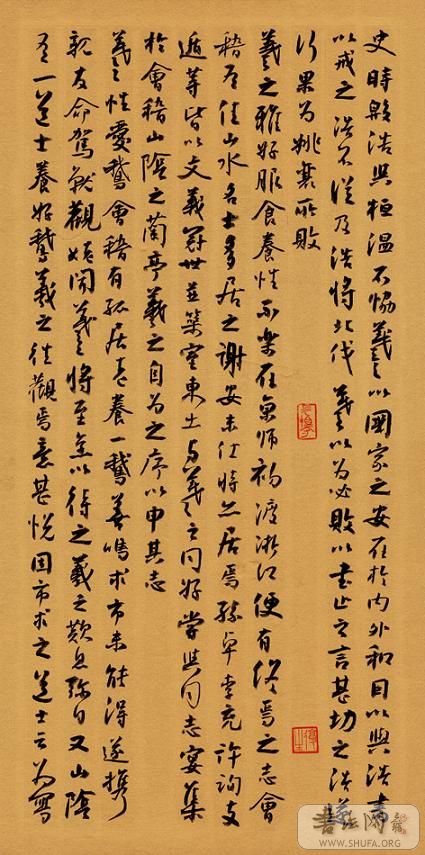 史時殷浩與桓温不協羲之以國家之安在於内外和因以與浩書
以戒之浩不從及浩將北伐羲之以为必敗以書止之言甚切之浩遂
行果为姚襄所敗
羲之雅好服食養性不樂在京師初渡浙江便有終焉之志會
稽有佳山水名士多居之謝安未仕時亦居焉孫卓李充許詢支
遁等皆以文義冠世並築室東土与羲之同好嘗與同志宴集
於會稽山陰之蘭亭羲之自为之序以申其志
羲之性愛鵝會稽有孤居老養一鵝善鳴求市未能得遂攜
親友命駕就觀姥聞羲之將至烹以待之羲之歎息彌日又山陰
有一道士養好鵝羲之往觀焉意甚悦固市求之道士云为寫
書法网
WWW.SHUFA.ORG